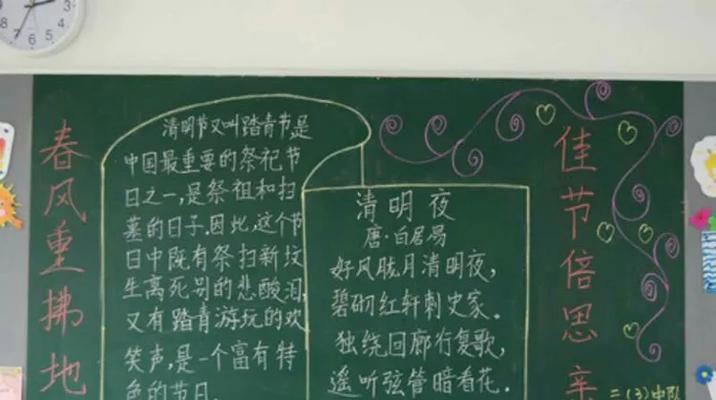 春风重拂地
清明节又叫踏青节是
中国最重要的祭祀节
日之一,是祭祖和扫
墓的日子.因此,这个节
日中既有祭扫新坟
生离死别的悲酸泪,
又有踏青游玩的欢
笑声,是一个富有特
色的节日.
清明夜
唐·白居易
好风胧月清明夜,
碧砌红轩刺史家.
独绕回廊行复歌,
遥听弦管暗看花.
佳节倍思亲
二(3)中队